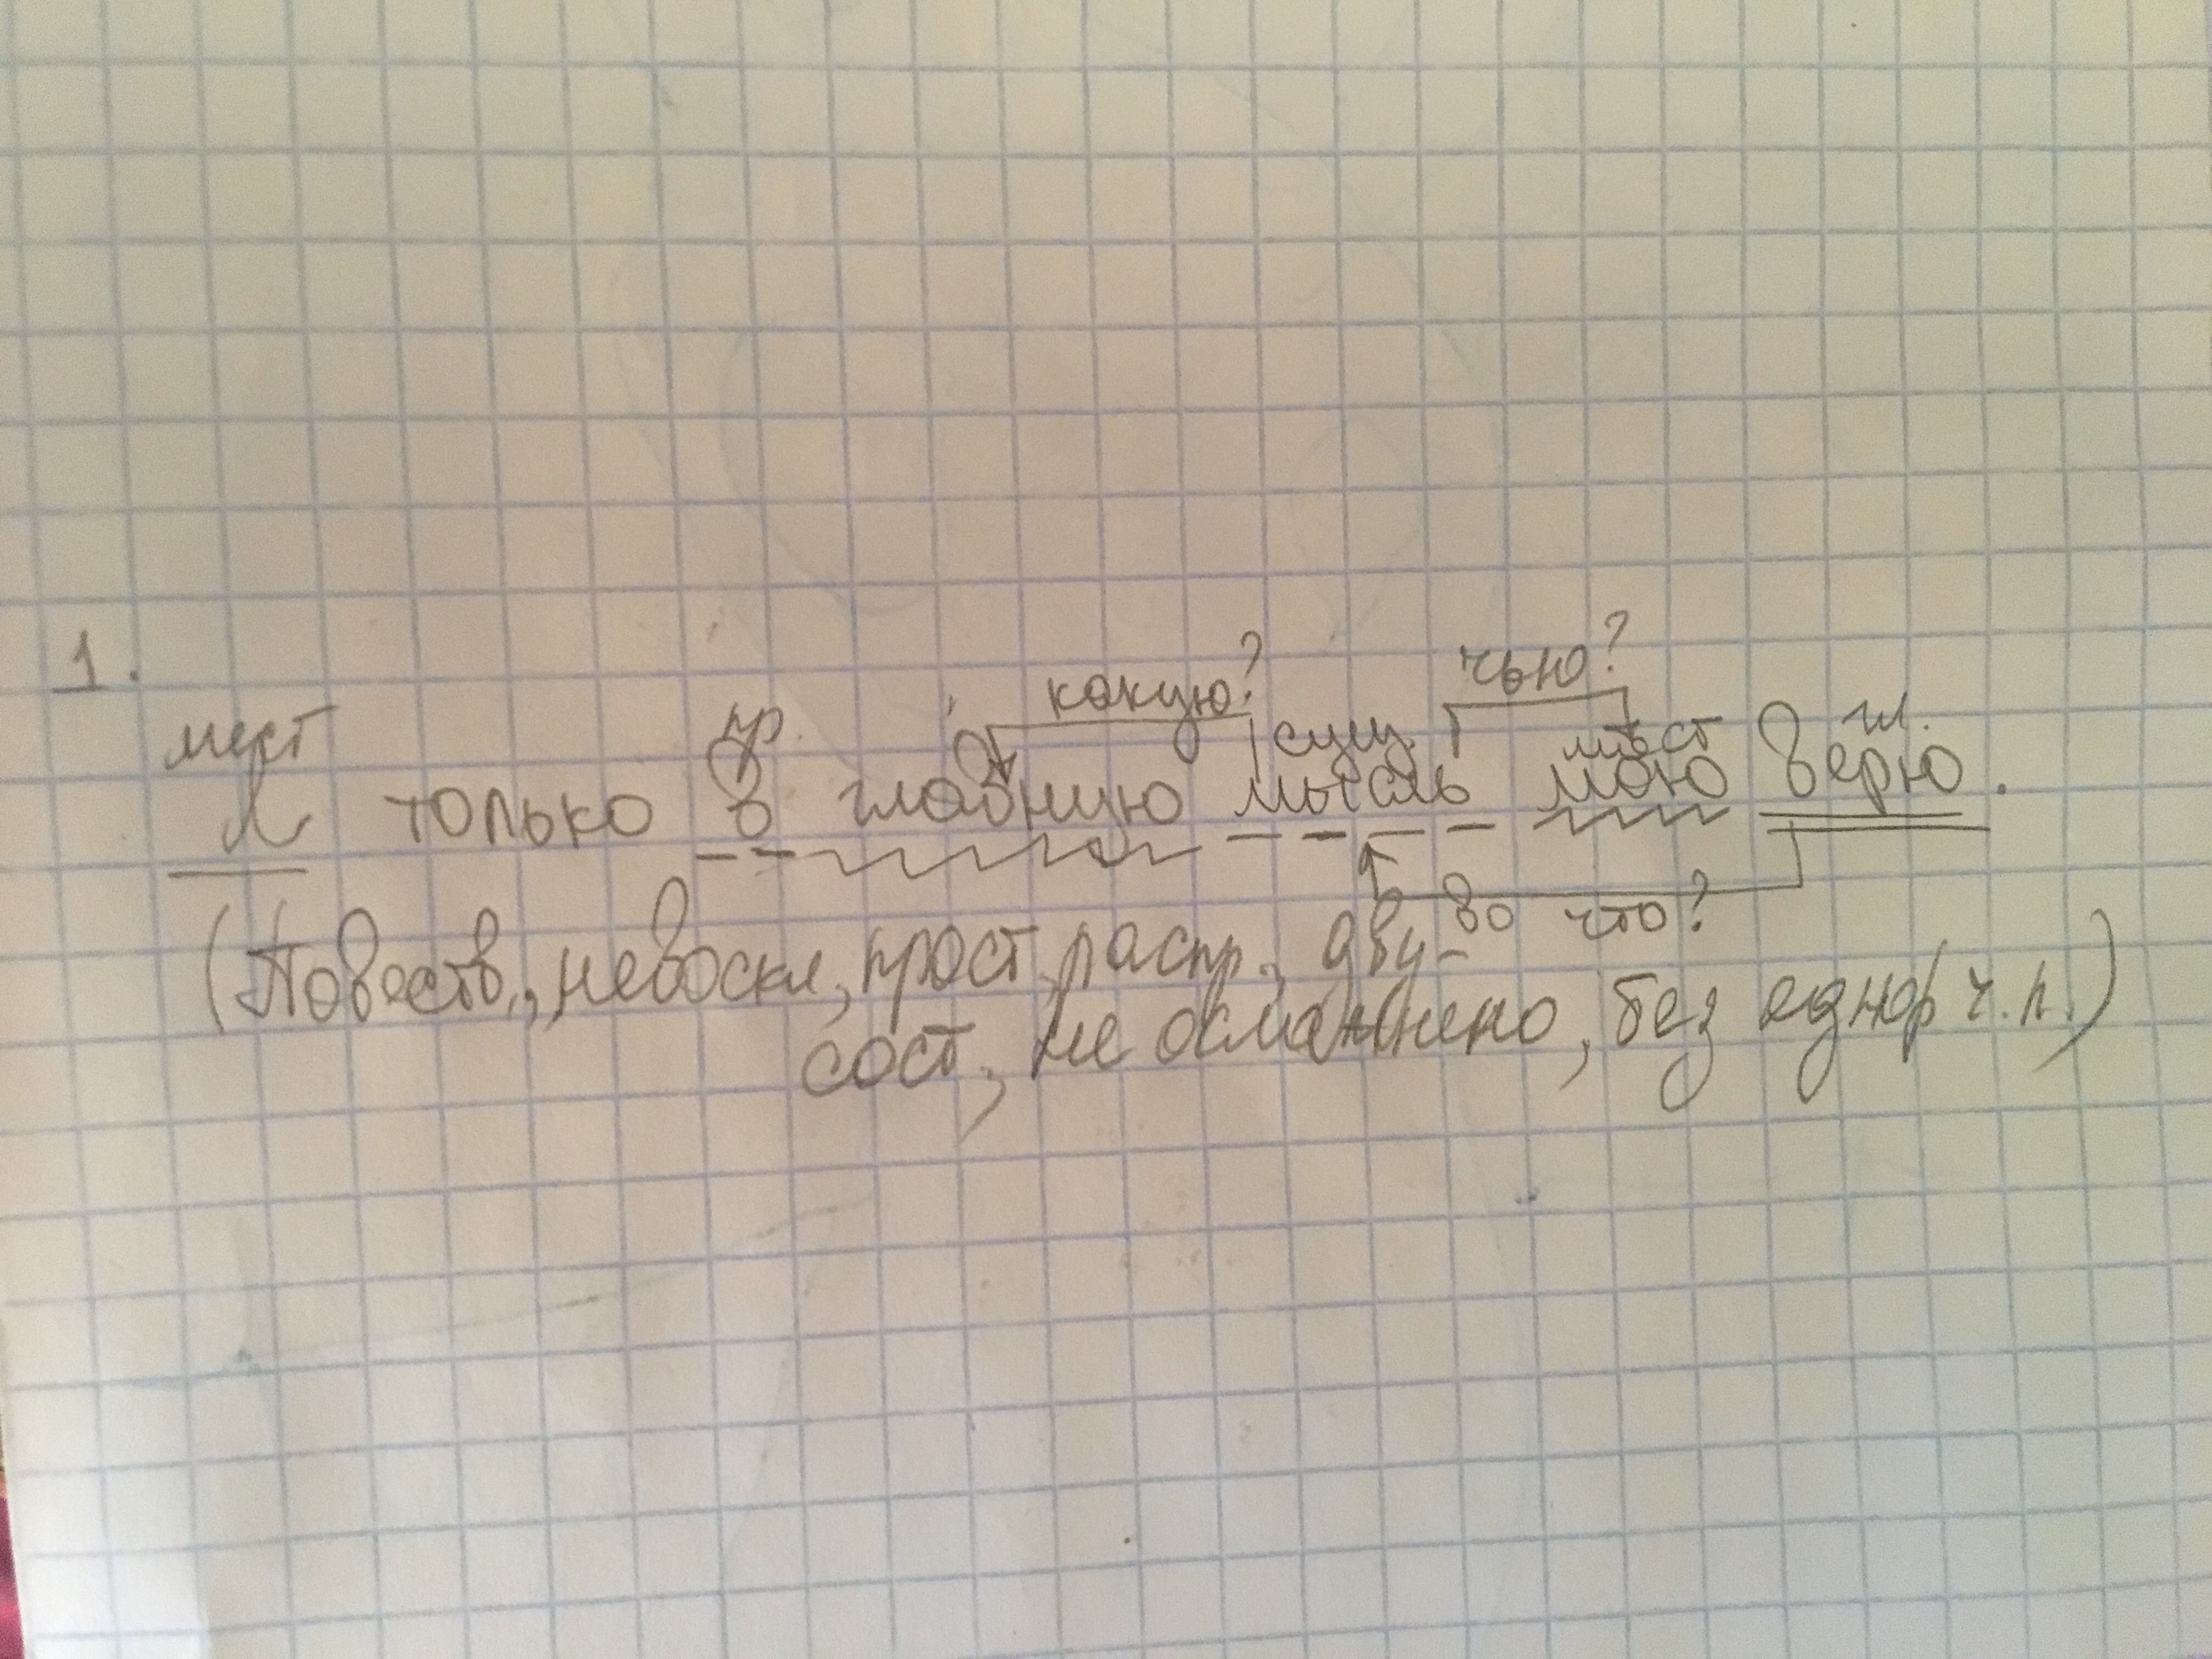 1.
какую? чью?
мест пр. сущ. мест гл.
Я только в главную мысль мою верю.
во что?
(Повеств., невоскл, прост, распр., дву-
сост, не осложнено, без однор ч.п.)